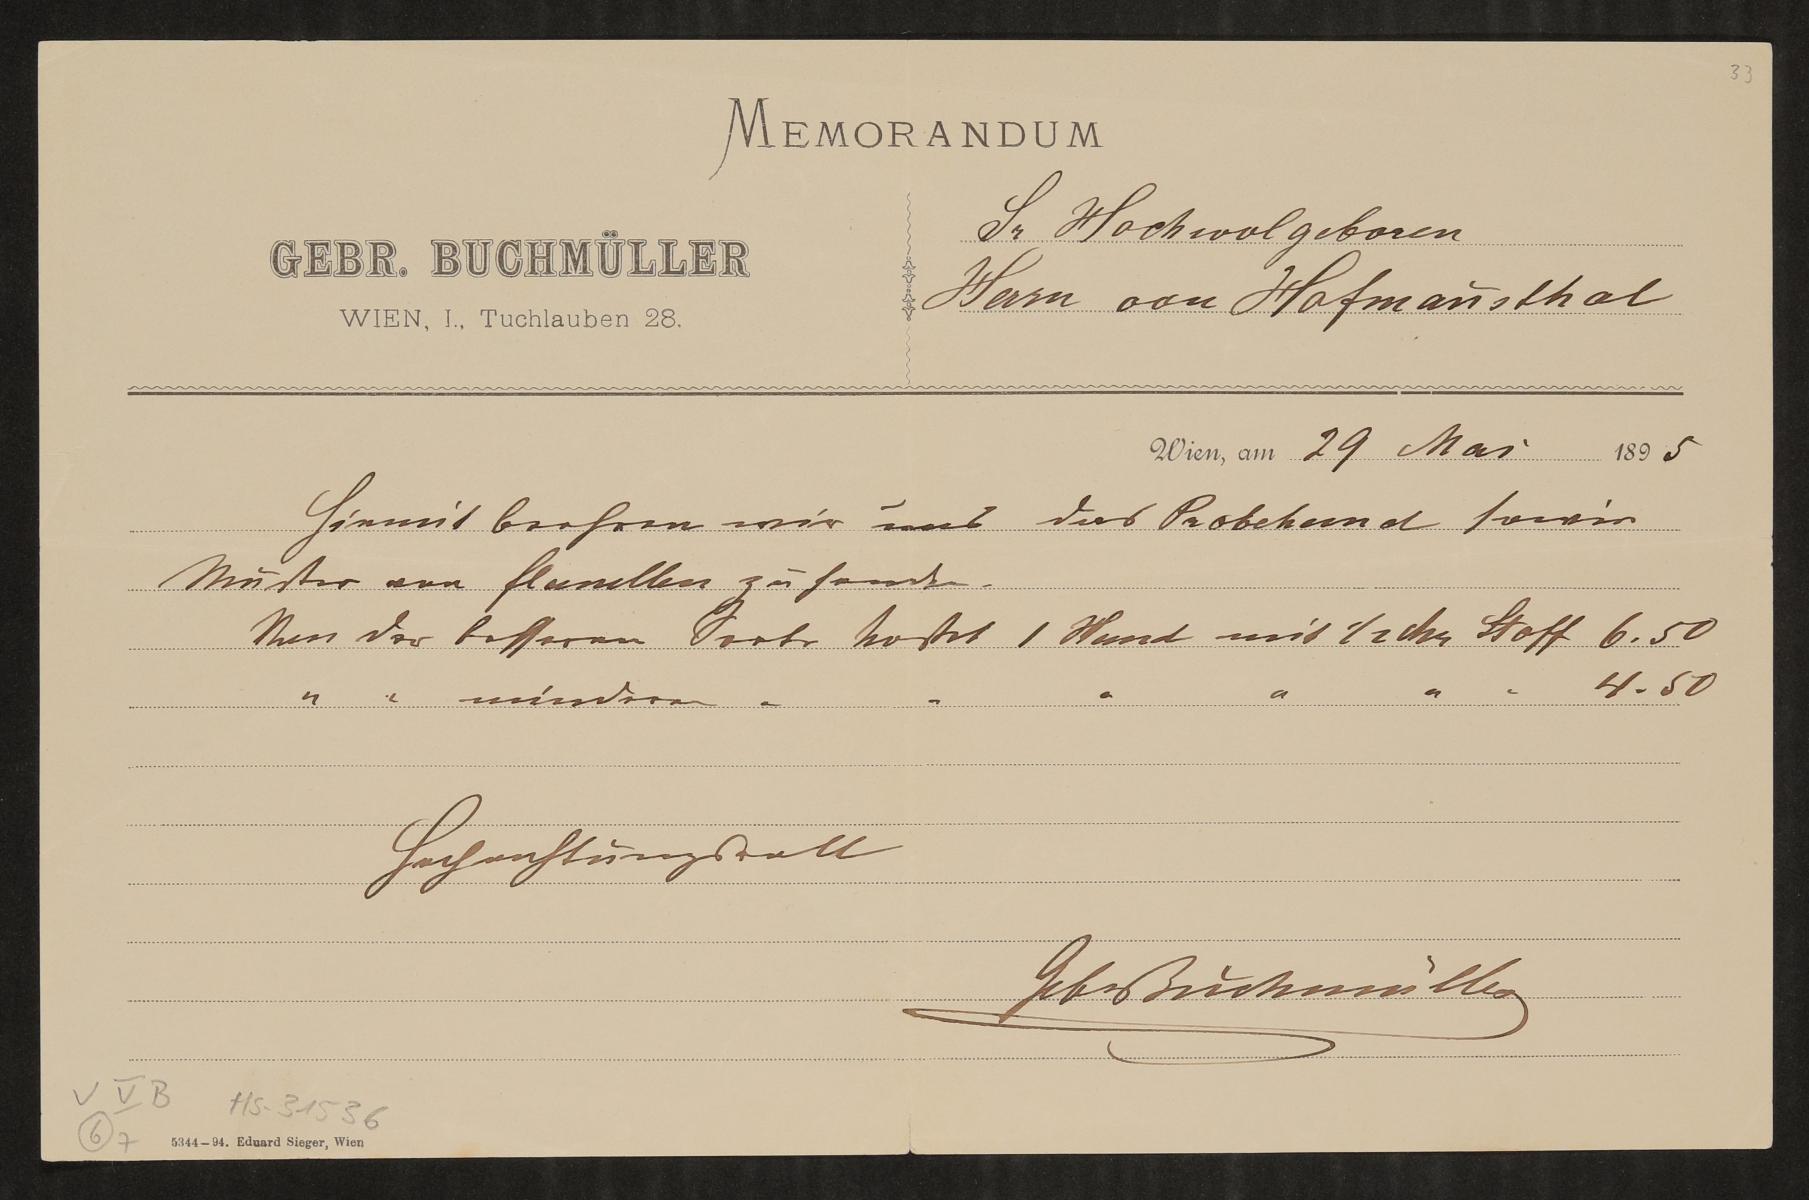 33
MEMORANDUM
GEBR. BUCHMÜLLER
WIEN, I., Tuchlauben 28.
Sr Hochwolgeboren
Herrn von Hofmansthal
Wien, am 29 Mai 1895
Hiemit beehren wir uns das Probehemd sowie
Muster von flanellen zu senden.
Von der besseren Sorte kostet 1 Hemd mit Stoff 6.50
" " mindern " " " " " " 4.50
Hochachtungsvoll
Gebr Buchmüller
V V B
HS-31536
6 7
5344–94. Eduard Sieger, Wien